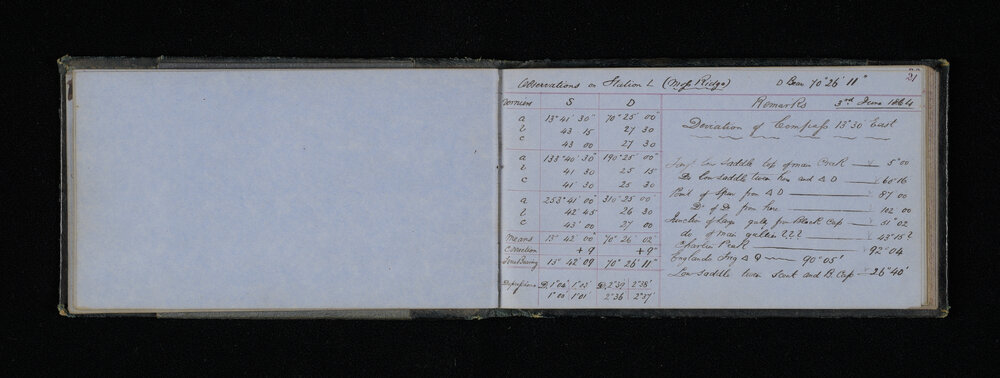 21
Observations on Station L (Moss Ridge) D Bear 70° 26' 11"
Verniers S D Remarks 3rd June 1864
a 13° 41' 30" 70° 25' 00"
b 43 15 27 30
c 43 00 27 30
Deviation of Compass 13° 30' East
a 133° 40' 30" 190° 25' 00"
b 41 30 25 15
c 41' 30 25 30
a 253° 41' 00" 310° 25' 00"
b 42' 45 26 30
c 43' 00 27 00
Means 13° 42' 00 70° 26 02"
Correction + 9 + 9"
True Bearing 13° 42' 09 70° 26' 11"
Depressions D, 1° 04' 1° 05' D, 2° 39' 2° 38'
1° 00' 1° 01' 2° 36 2° 37
low saddle top of main Creek 5° 00
Do low saddle twixt here and Δ D 60° 16
Point of Spur from Δ D 87 00
Do of Do from here 102 00
Junction of large gully from Black Cap 51° 02
do. of main gullies ??? 43° 15 ?
Charlies Peak 92° 04
Englands Δ Q 90° 05'
Low saddle twixt and B. Cap 26° 40'